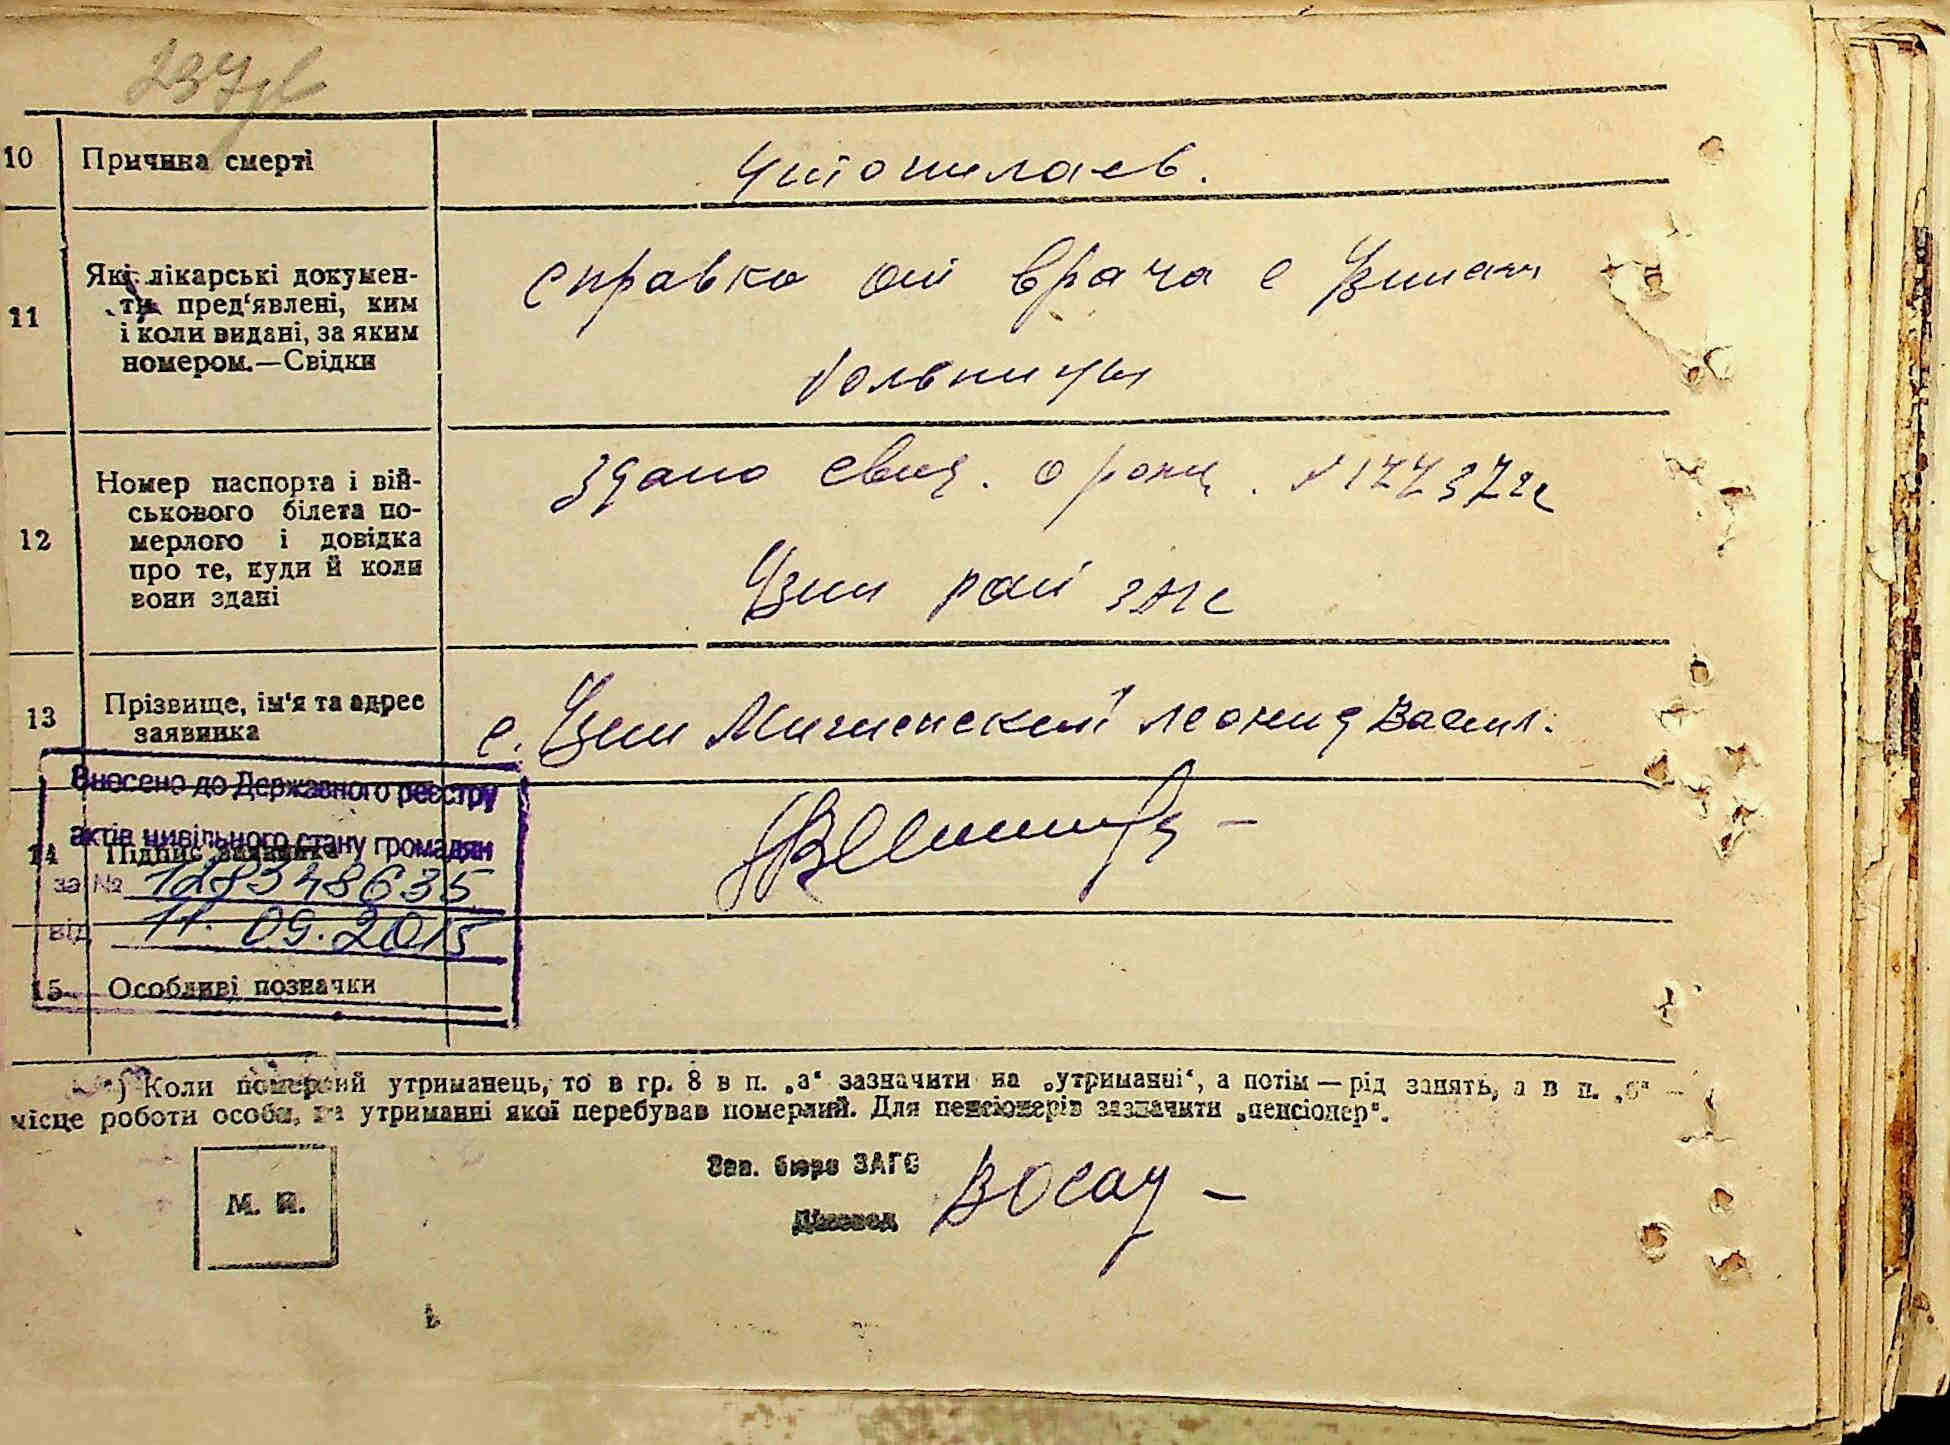 237
10 Причина смерті утопилась.
11 Які лікарські докумен-
ти пред‘явлені, ким
і коли видані, за яким
номером.—Свідки
справка от врача с
больницы
12 Номер паспорта і вій-
ськового білета по-
мерлого і довідка
про те, куди й коли
вони здані
здано свид. о рожд.
рай загс
13 Прізвище, ім‘я та адрес
заявника
с. Леонид Васил.
Внесено до Державного реєстру
актів цивільного стану громадян
14 Підпис заявника
за № 128348635
від 11.09.2015
15 Особливі позначки
*) Коли померлий утриманець, то в гр. 8 в п. „а“ зазначити на „утриманні“, а потім — рід занять, а в п. „б“ —
місце роботи особи, на утриманні якої перебував померлий. Для пенсіонерів зазначити „пенсіонер“.
Зав. бюро ЗАГС
М. П.
Діловод